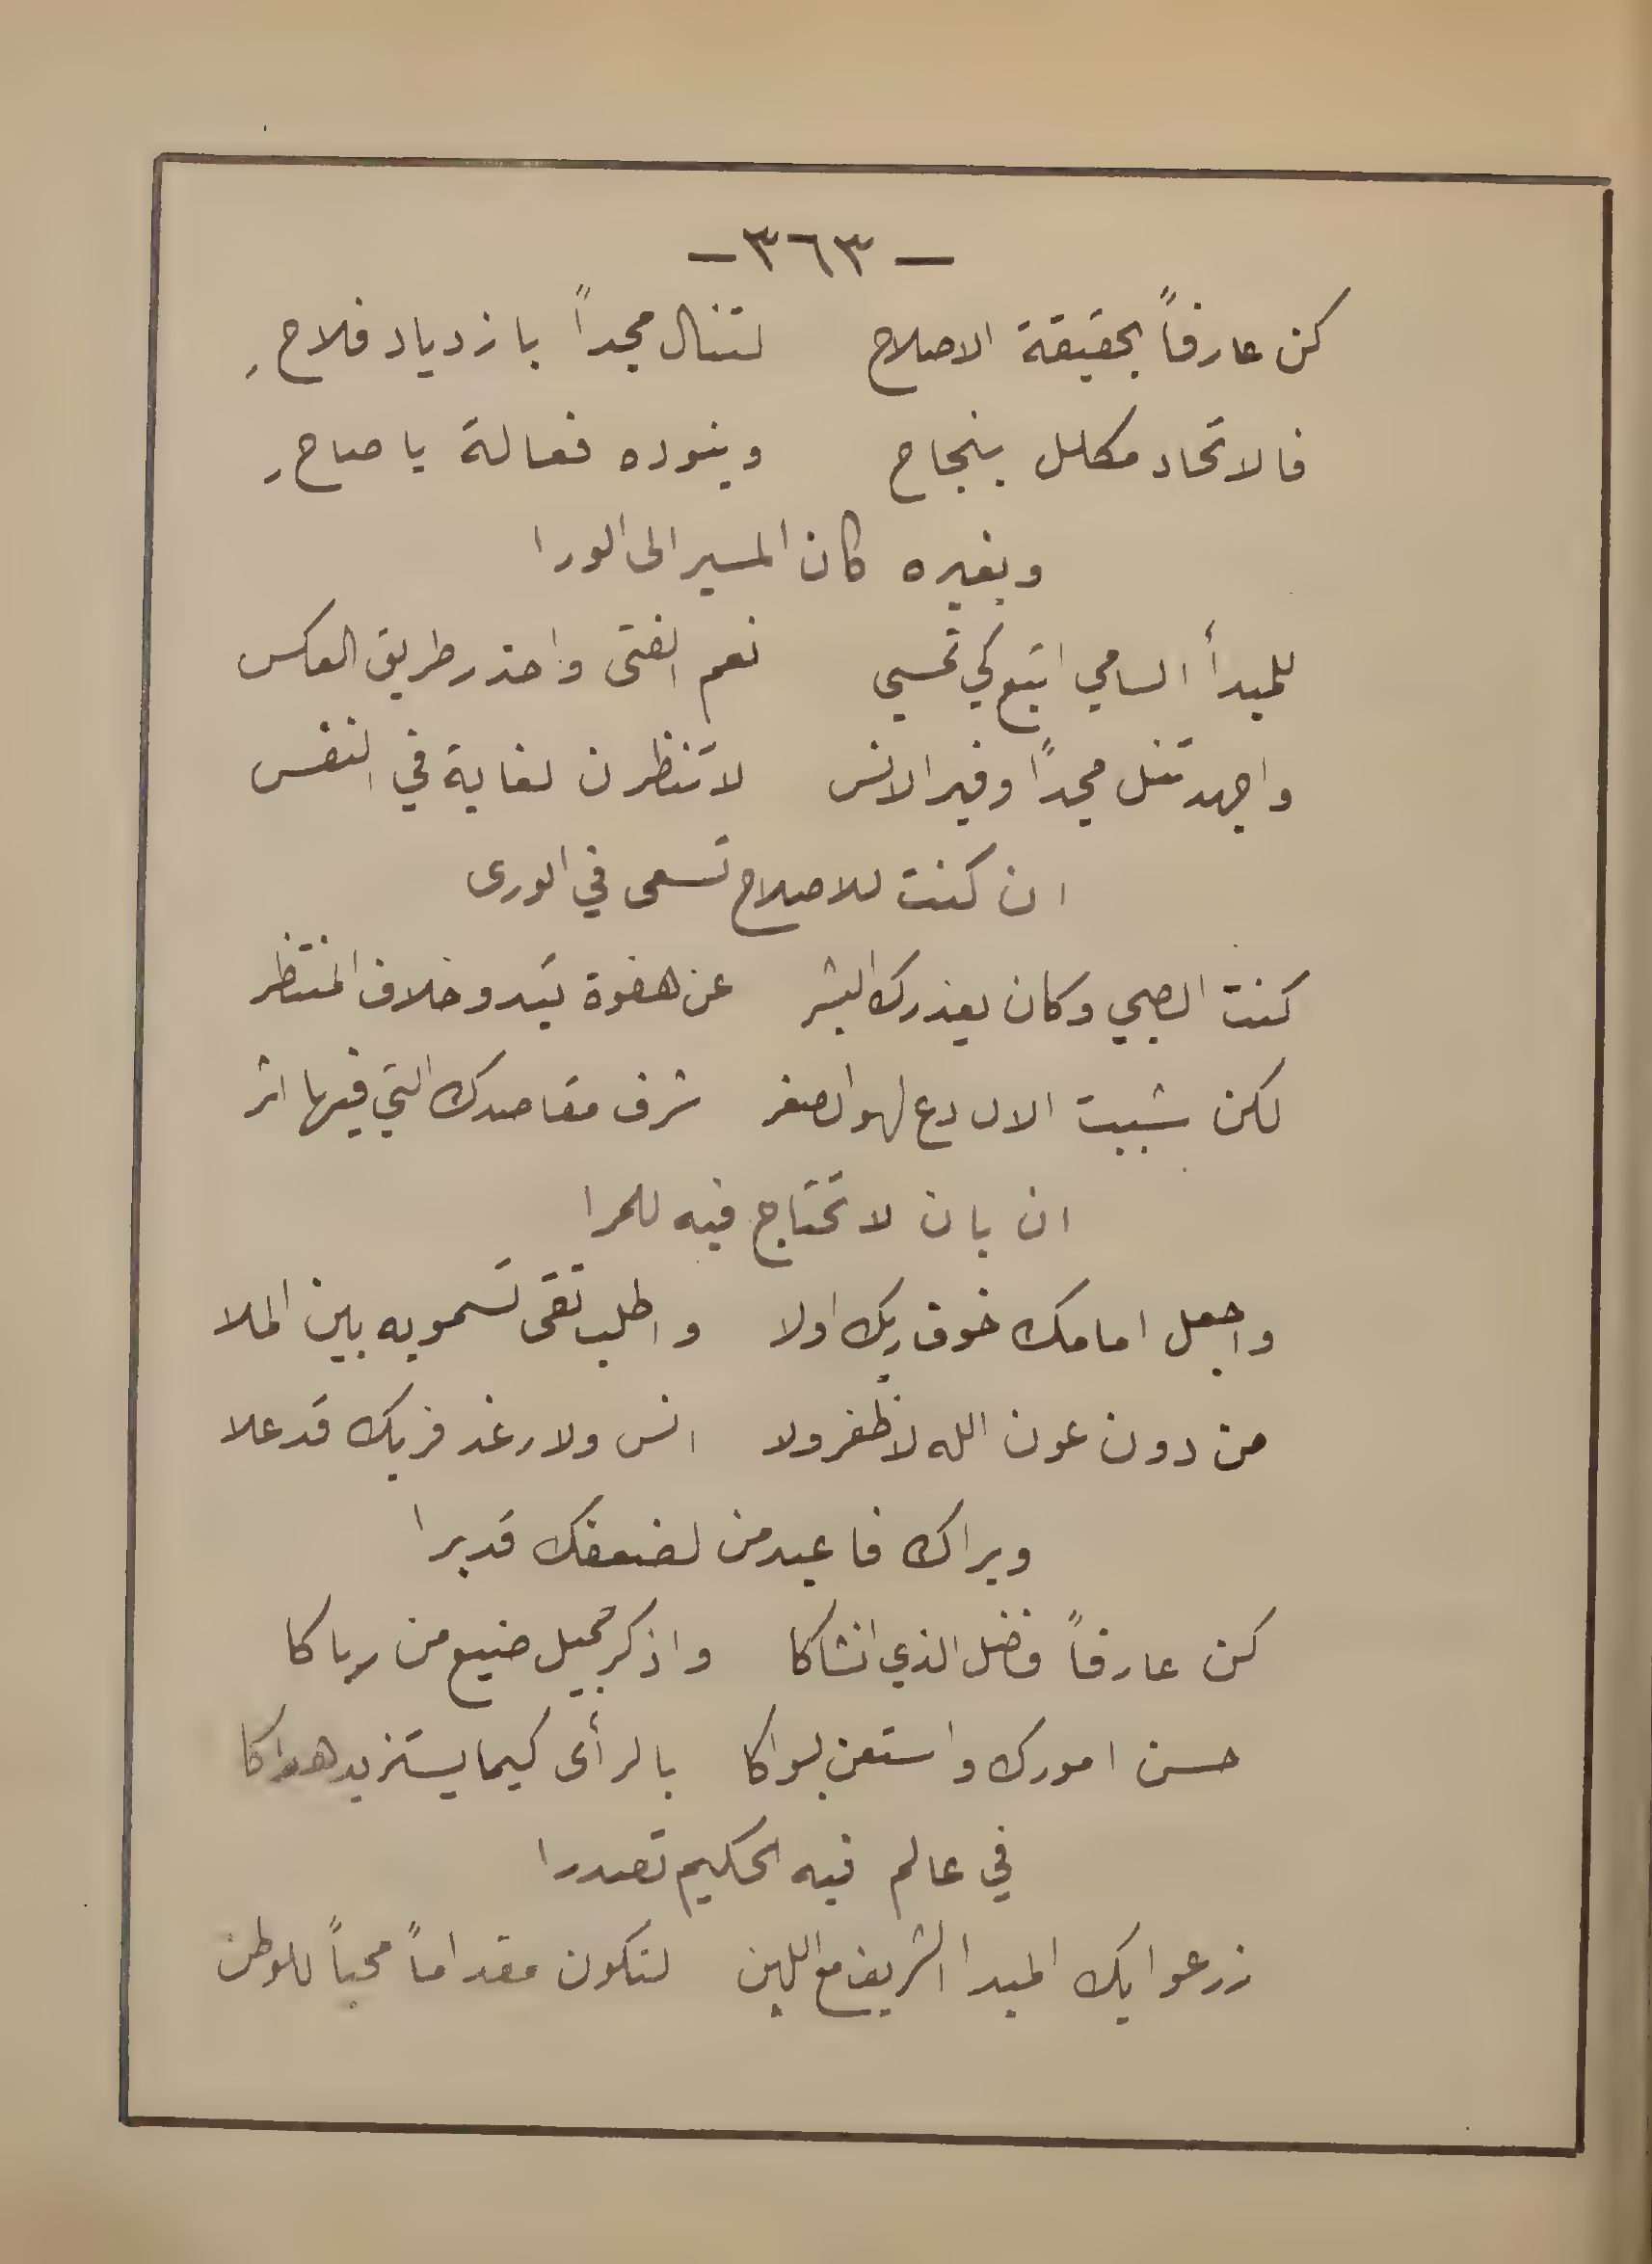 — ٣٦٣ —
كن عارفاً بحقيقة الاصلاح لتنال مجداً بازدياد فلاحِ
فالاتحاد مكلل بنجاح وبنوده فعالة يا صاحِ
وبغيره كان المسير الى الورا
للمبدأ السامي اتبع كي تحسي نعم الفتى واحذر طريق العكس
واجهد تنل مجداً وفير الانس لا تنظرن لغاية في النفس
ان كنت للاصلاح تسعى في الورى
كنت الصبي وكان يعذرك البشر عن هفوة تبدو خلاف المنتظر
لكن شببت الان دع لهو الصغر شرف مقاصدك التي فيها اثر
ان بان لا تحتاج فيه للمرا
واجعل امامك خوف ربك اولا واطلب تقى تسمو به بين الملا
من دون عون الله لا ظفر ولا انس ولا رغد فربك قد علا
ويراك فاعبد من لضعفك قد برا
كن عارفاً فضل الذي انشاكا واذكر جميل صنيع من رباكا
حسن امورك واستعن بسواكا بالرأى كيما يستزيد هداكا
في عالم فيه الحكيم تصدرا
زرعوا بك المبدا الشريف مع اللبن لتكون مقداماً محباً للوطن